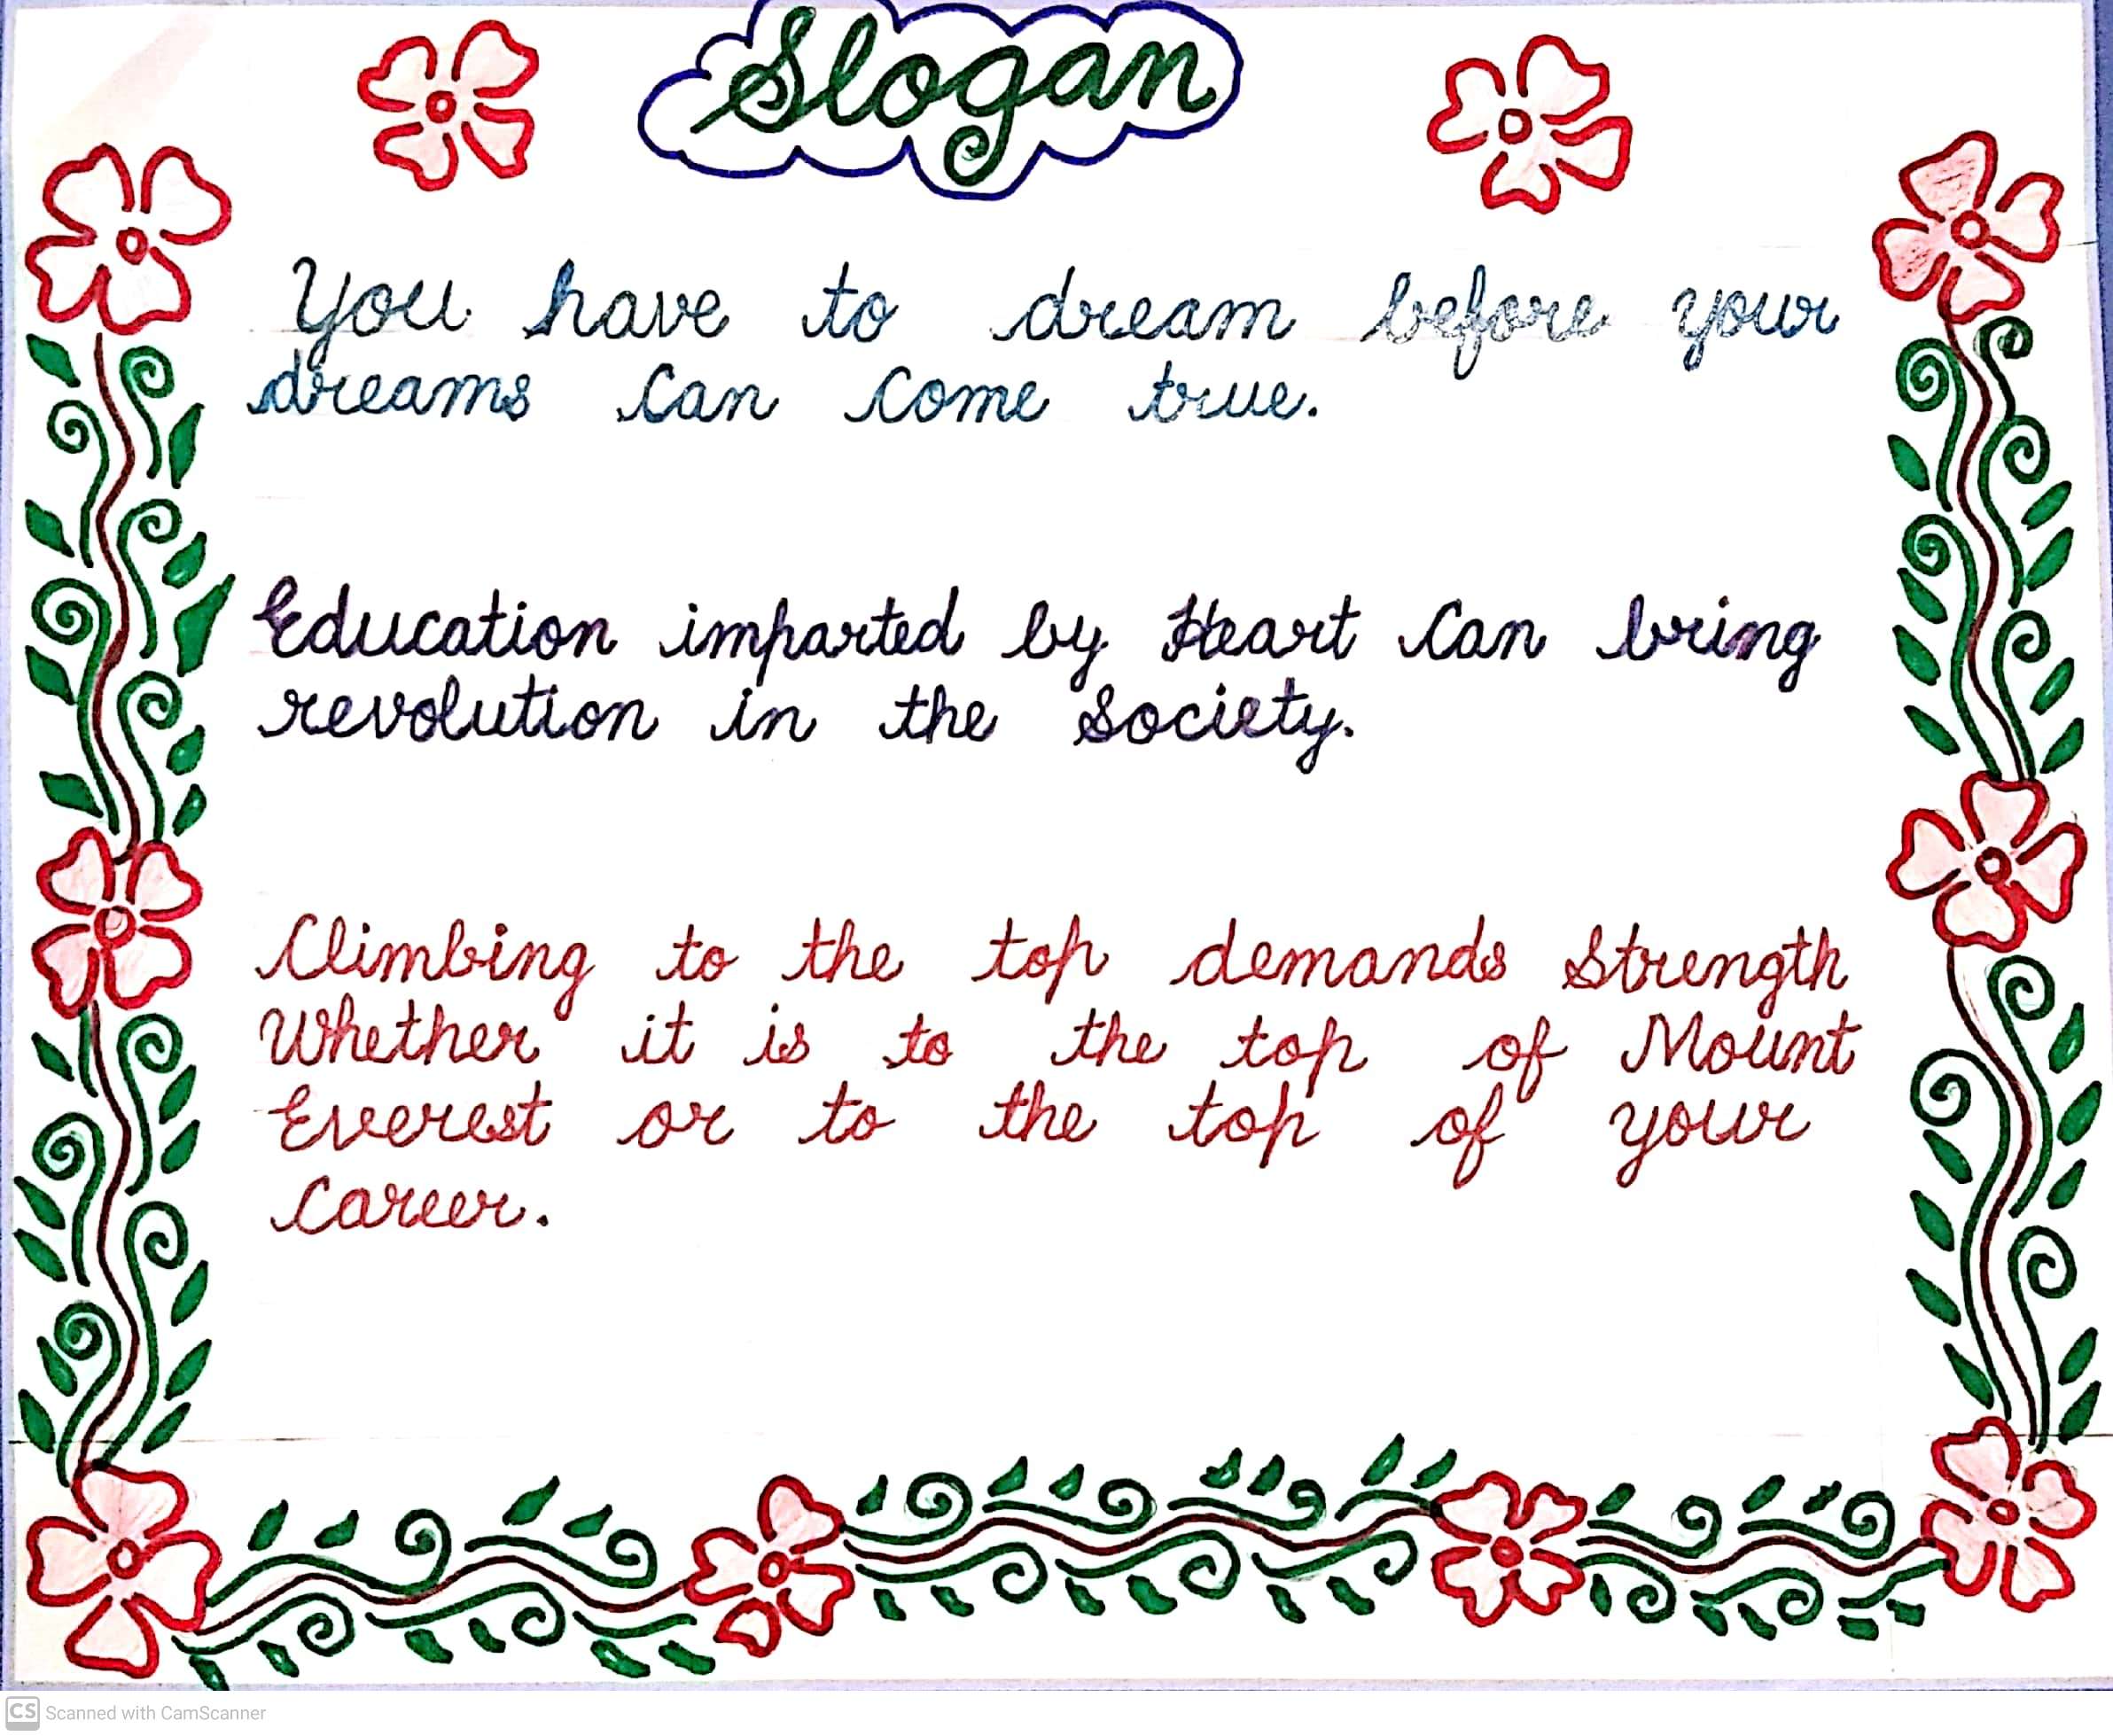 Slogan
You have to dream before your
dreams can come true.
Education imparted by Heart can bring
revolution in the Society.
Climbing to the top demands Strength
Whether it is to the top of Mount
Everest or to the top of your
Career.
CS Scanned with CamScanner